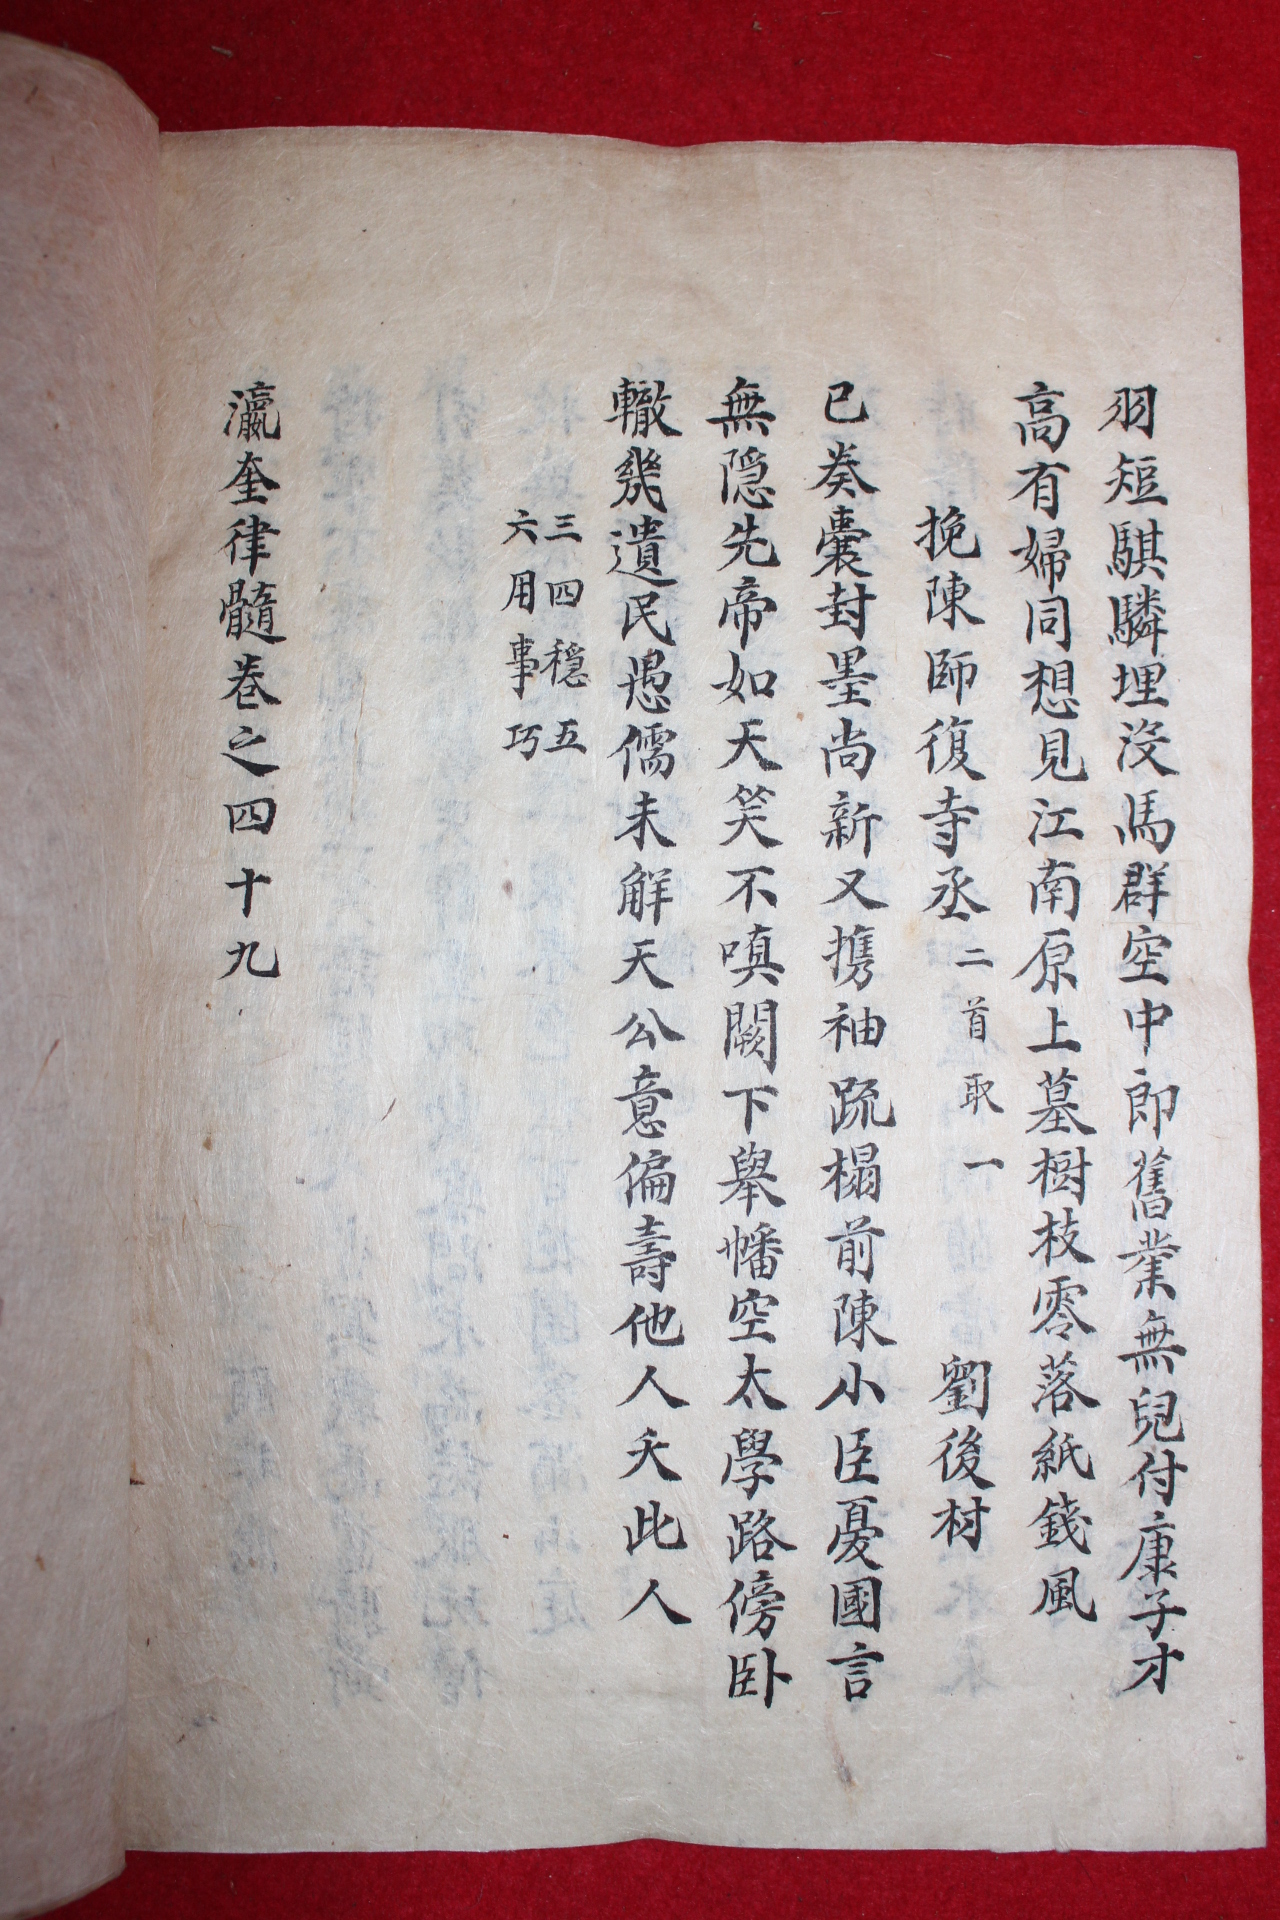 羽短騏驎埋沒馬群空中郎舊業無兒付康子才
高有婦同想見江南原上墓樹枝零落紙錢風
挽陳師復寺丞 二首取一 劉後村
已葵囊封墨尚新又携袖疏榻前陳小臣憂國言
無隠先帝如天笑不嗔闕下舉幡空太學路傍卧
轍幾遺民愚儒未解天公意偏壽他人夭此人
三四穩五
六用事巧
瀛奎律髓卷之四十九